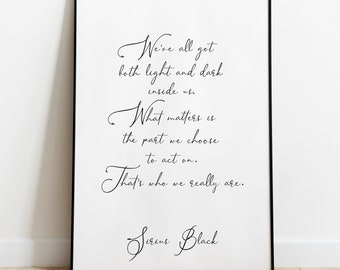 We've all got
both light and dark
inside us.
What matters is
the part we choose
to act on.
That's who we really are.
Sirius Black